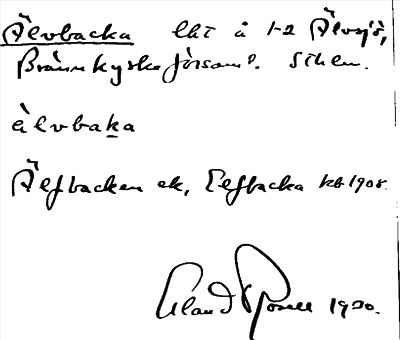 Älvbacka lht å 1-2 Älvsjö,
Brännkyrka församl. Sthlm.
älvbaka
Älfbacken ek, Elfbacka kb 1908.
Erland Rosell 1930.